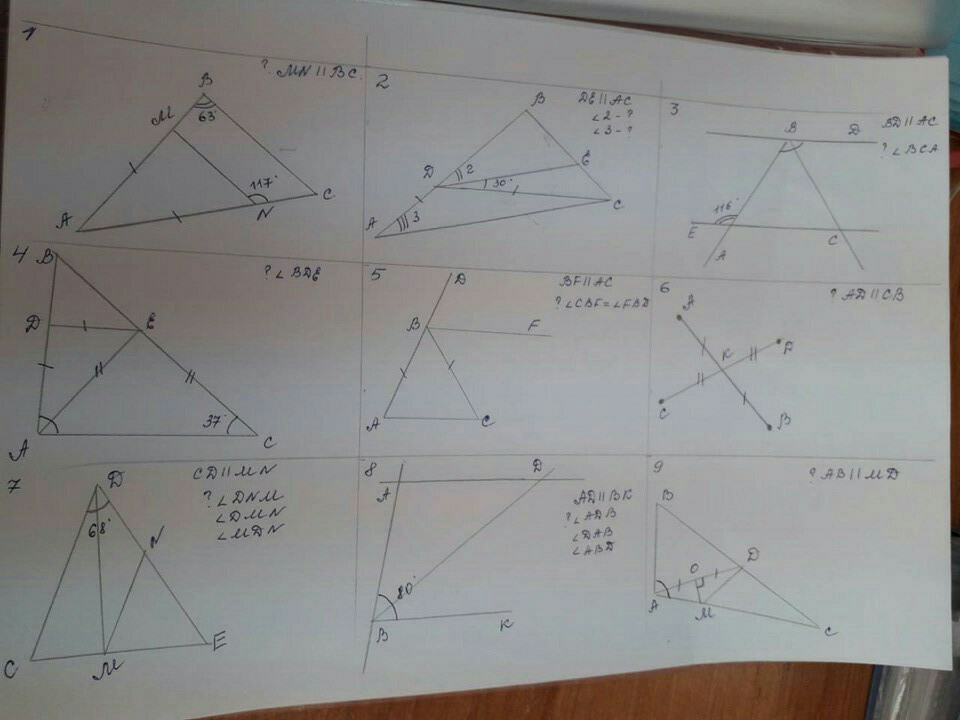 1
? MN || BC
B
M
63°
117°
A
N
C
2
DE || AC
∠2-?
∠3-?
B
E
D
2
30°
C
A
3
3
B
D
BD || AC
? ∠BCA
116°
E
A
C
4
B
? ∠BDE
D
E
37°
A
C
5
D
BF || AC
? ∠CBF=∠FBD
B
F
A
C
6
? AD || CB
A
K
D
C
B
7
D
CD || MN
? ∠DNM
∠DMN
∠MDN
68°
N
C
M
E
8
A
D
AD || BK
? ∠ADB
∠DAB
∠ABD
80°
B
K
9
? AB || MD
B
O
D
A
M
C